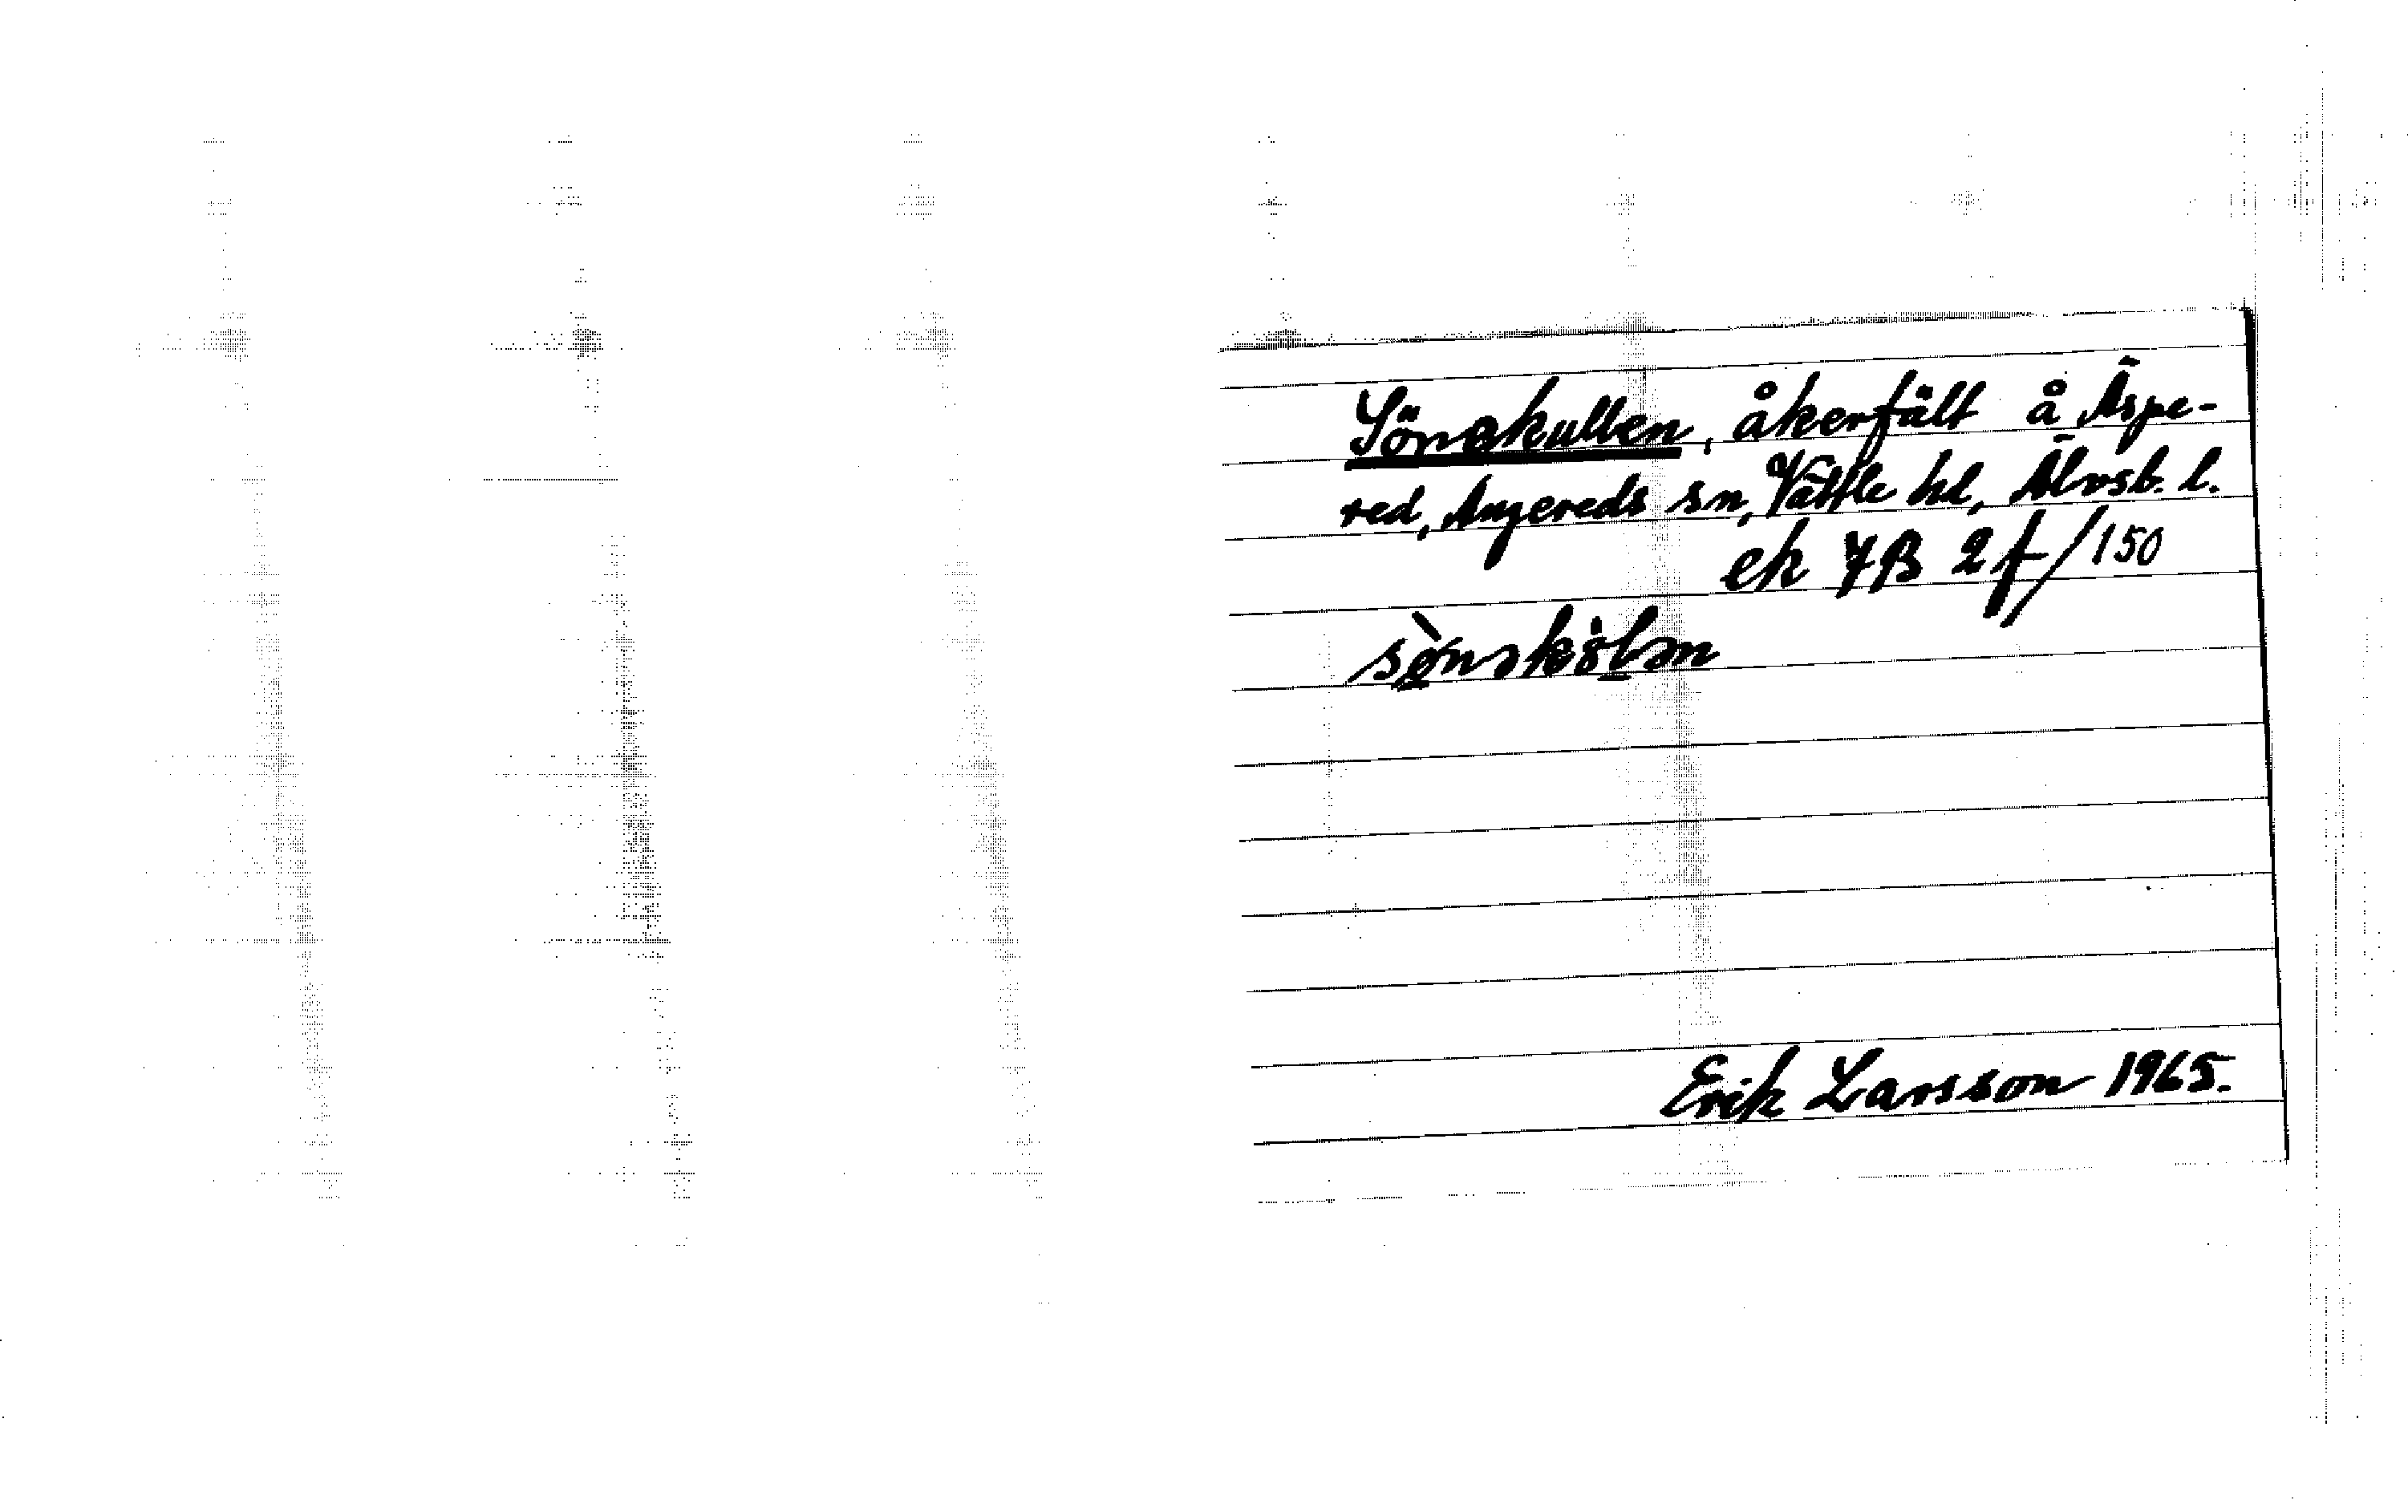 Sönekullen, åkerfält å Äspe-
red, Angereds sn, Vättle hd, Älvsb. l.
ek 7B 2f/150
sø̀nəkölən
Erik Larsson 1965.